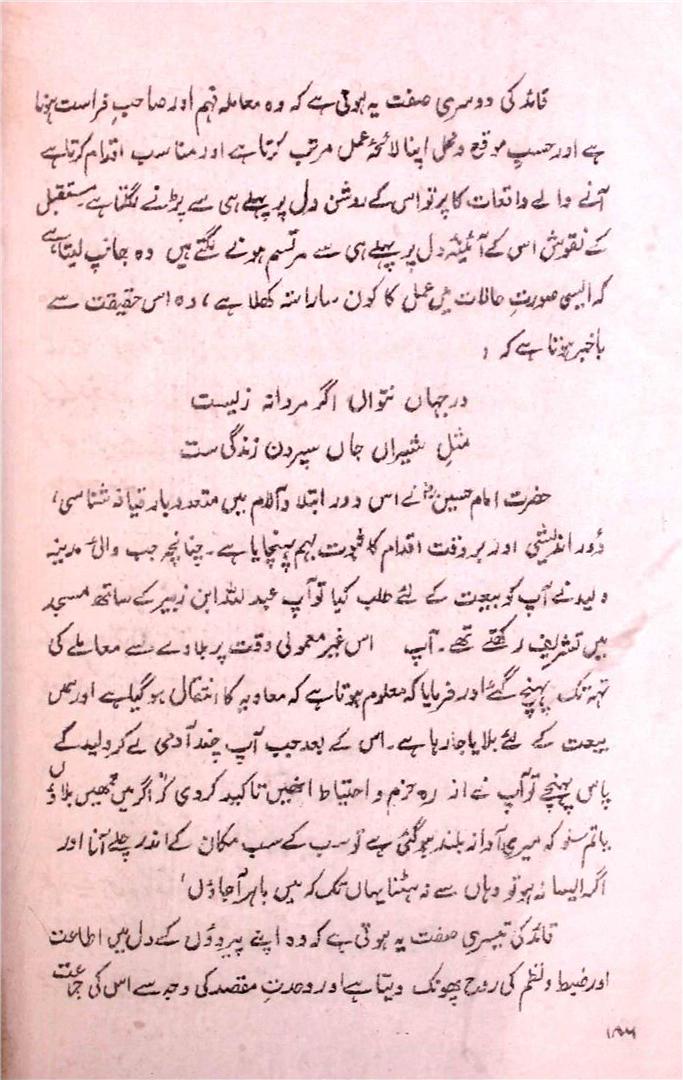 قائد کی دوسری صفت یہ ہوتی ہے کہ وہ معاملہ فہم اور صاحبِ فراست ہوتا
ہے اور حسبِ موقع و محل اپنا لائحۂ عمل مرتب کرتا ہے اور مناسب اقدام کرتا ہے
آنے والے واقعات کا پرتو اس کے روشن دل پر پہلے ہی سے پڑنے لگتا ہے مستقبل
کے نقوش اس کے آئینۂ دل پر پہلے ہی سے مرتسم ہونے لگتے ہیں وہ بھانپ لیتا ہے
کہ ایسی صورتِ حالات میں عمل کا کون سا راستہ کھلا ہے ، وہ اس حقیقت سے
باخبر ہوتا ہے کہ :
در جہاں نتواں اگر مردانہ زیست
مثلِ شیراں جاں سپردن زندگی ست
حضرت امام حسینؓ نے اس دور ابتلا و آلام میں متعدد بار قیافہ شناسی ،
دُور اندیشی اور بر وقت اقدام کا ثبوت بہم پہنچایا ہے ۔ چنانچہ جب والیٔ مدینہ
ولید نے آپ کو بیعت کے لئے طلب کیا تو آپ عبد اللہ ابن زبیر کے ساتھ مسجد
میں تشریف رکھتے تھے ۔ آپ اس غیر معمولی وقت پر بلاوے سے معاملے کی
تہہ تک پہنچ گئے اور فرمایا کہ معلوم ہوتا ہے کہ معاویہ کا انتقال ہو گیا ہے اور ہمیں
بیعت کے لئے بلایا جا رہا ہے ۔ اس کے بعد جب آپ چند آدمی لے کر ولید کے
پاس پہنچے تو آپ نے از رہ حزم و احتیاط انھیں تاکید کر دی کہ "اگر میں تمھیں بلاؤں
یا تم سنو کہ میری آواز بلند ہو گئی ہے تو سب کے سب مکان کے اندر چلے آنا اور
اگر ایسا نہ ہو تو وہاں سے نہ ہٹنا یہاں تک کہ میں باہر آ جاؤں '
قائد کی تیسری صفت یہ ہوتی ہے کہ وہ اپنے پیروؤں کے دل میں اطاعت
اور ضبط و نظم کی روح پھونک دیتا ہے اور وحدتِ مقصد کی وجہ سے اس کی جماعت